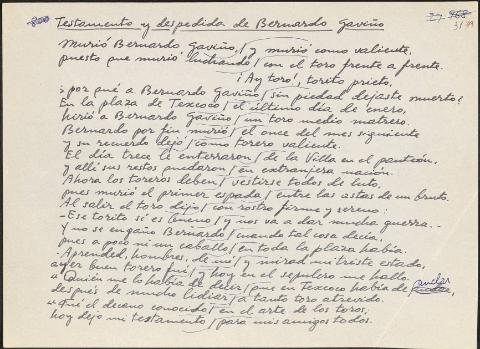 800 Testamento y despedida de Bernardo Gaviño
3/39
Murió Bernardo Gaviño, / y murió como valiente,
puesto que murió luchando / con el toro frente a frente.
¡Ay toro!, torito prieto,
¿por qué a Bernardo Gaviño / sin piedad dejaste muerto?
En la plaza de Texcoco / el último día de enero,
hirió a Bernardo Gaviño / un toro medio matrero.
Bernardo por fin murió / el once del mes siguiente
y su recuerdo dejó / como torero valiente.
El día trece le enterraron / de la Villa en el panteón,
y allí sus restos quedaron / en extranjera nación.
Ahora los toreros deben / vestirse todos de luto,
pues murió el primer espada / entre las astas de un bruto.
Al salir el toro dijo / con rostro firme y sereno:
-Ese torito sí es bueno / y nos va a dar mucha guerra.-
Y no se engaño Bernardo / cuando tal cosa decía,
pues a poco ni un caballo / en toda la plaza había.
-Aprended, hombres, de mí / y mirad mi triste estado,
ayer buen torero fuí / y hoy en el sepulcro me hallo.
"Quién me lo había de decir / que en Texcoco había de quedar,
después de mucho lidiar / a tanto toro atrevido.
"Fuí el decano conocido / en el arte de los toros,
hoy dejo mi testamento / para mis amigos todos.